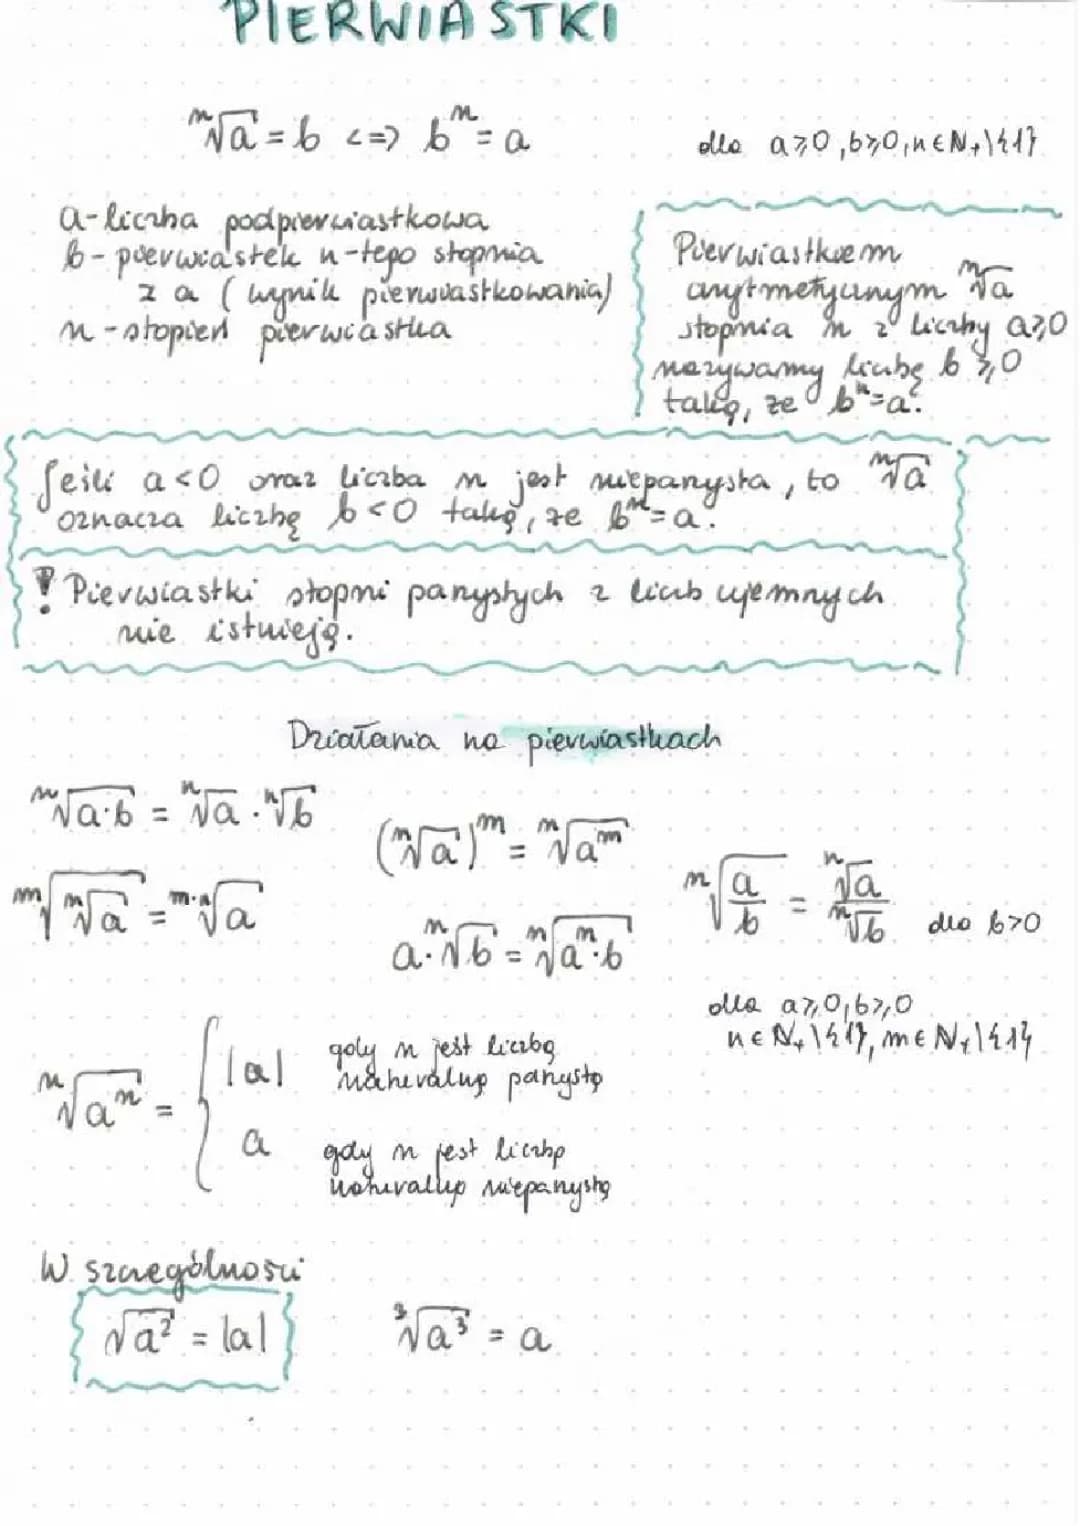 PIERWIASTKI
ⁿ√a = b <=> bⁿ = a
dla a⩾0, b⩾0, n∈N₊\{1}
a - liczba podpierwiastkowa
b - pierwiastek n-tego stopnia
z a (wynik pierwiastkowania)
n - stopień pierwiastka
Pierwiastkiem
arytmetycznym ⁿ√a
stopnia n z liczby a⩾0
nazywamy liczbę b⩾0
taką, że bⁿ=a.
Jeśli a<0 oraz liczba n jest nieparzysta, to ⁿ√a
oznacza liczbę b<0 taką, że bⁿ=a.
! Pierwiastki stopni parzystych z liczb ujemnych
nie istnieją.
Działania na pierwiastkach
ⁿ√(a·b) = ⁿ√a · ⁿ√b
(ⁿ√a)ᵐ = ⁿ√(aᵐ)
ᵐ√(ⁿ√a) = ᵐ·ⁿ√a
ⁿ√(a/b) = ⁿ√a / ⁿ√b dla b>0
a·ⁿ√b = ⁿ√(aⁿ·b)
dla a⩾0, b⩾0
n∈N₊\{1}, m∈N₊\{1}
ⁿ√(aⁿ) = { |a| gdy n jest liczbą
naturalną parzystą
a gdy n jest liczbą
naturalną nieparzystą
W szczególności
√a² = |a|
³√a³ = a